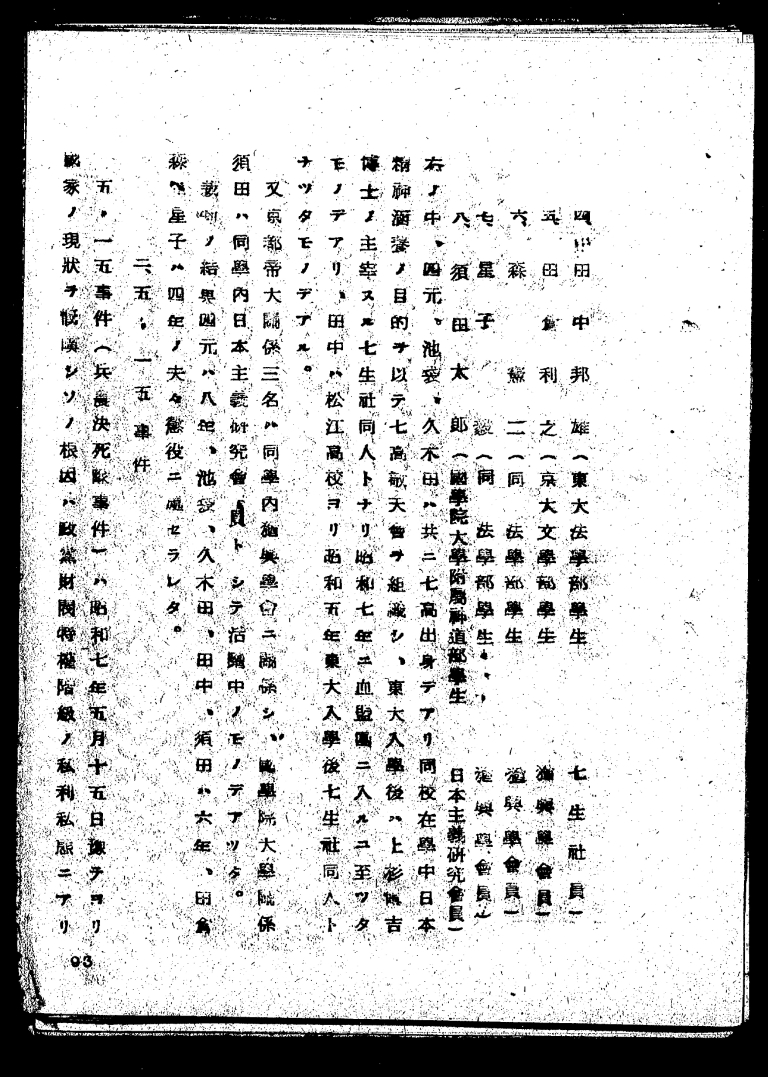 四、田中邦雄（東大法學部學生　七生社員）
五、田倉利之（京大文學部學生　猶興學會員）
六、森憲二（同　法學部學生　猶興學會員）
七、星子毅（同　法學部學生　猶興學會員）
八、須田太郎（國學院大學附屬神道部學生　日本主義研究會員）
右ノ中、四元、池袋、久木田ハ共ニ七高出身デアリ同校在學中日本
精神涵養ノ目的ヲ以テ七高敬天會ヲ組識シ、東大入學後ハ上杉愼吉
博士ノ主宰スル七生社同人トナリ昭和七年ニ血盟團ニ入ルニ至ツタ
モノデアリ、田中ハ松江高校ヨリ昭和五年東大入學後七生社同人ト
ナツタモノデアル。
又京都帝大關係三名ハ同學內猶興學會ニ關係シ、國學院大學關係
須田ハ同學內日本主義研究會員トシテ活躍中ノモノデアツタ。
裁判ノ結果四元ハ八年、池袋、久木田、田中、須田ハ六年、田倉
森、星子ハ四年ノ夫々懲役ニ處セラレタ。
二、五・一五事件
五・一五事件（兵農決死隊事件）ハ昭和七年五月十五日豫テヨリ
國家ノ現狀ヲ慨嘆シソノ根因ハ政黨財閥特權階級ノ私利私慾ニアリ
93